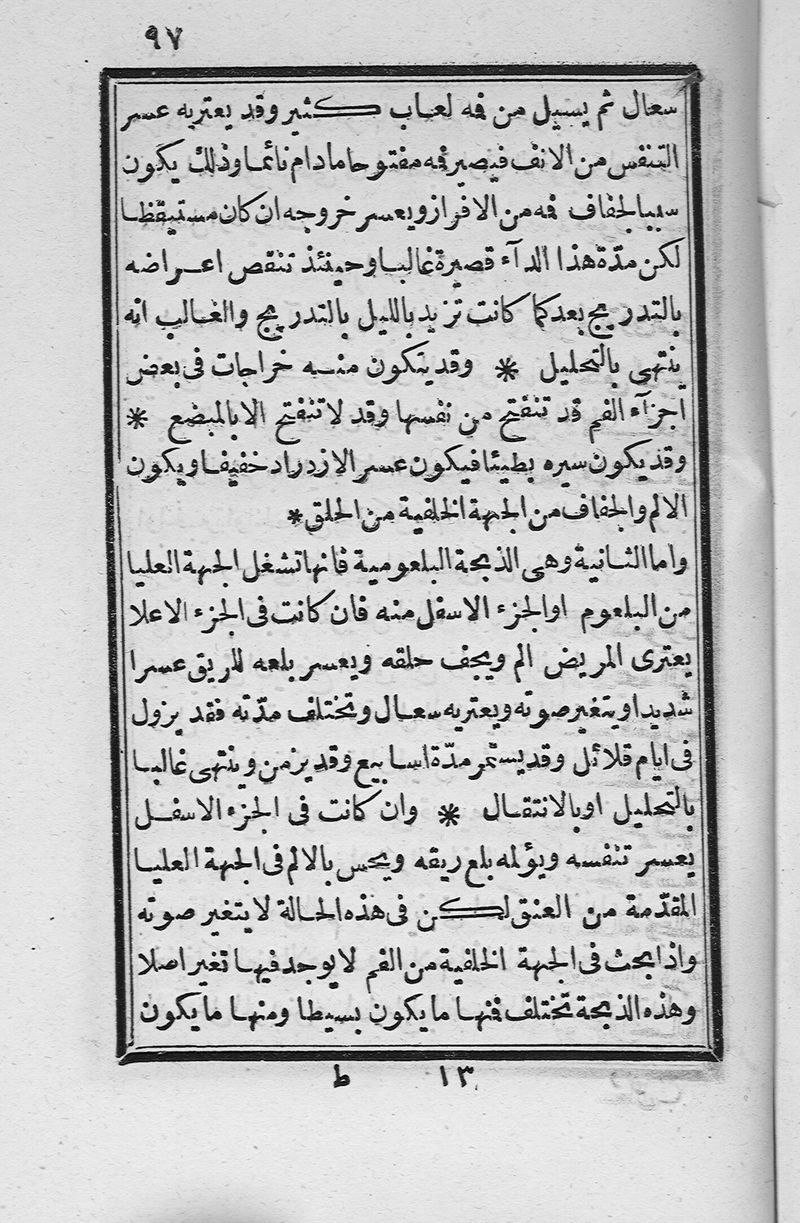 ٩٧
سعال ثم يسيل من فه لعاب كثير وقد يعتريه عسر
التنفس من الانف فيصير فه مفتوحا مادام نائما وذلك يكون
سببا لجفاف فه من الافراز ويعسر خروجه ان كان مستيقظا
لكن مدّة هذا الدآء قصيرة غالبا وحينئذ تنقص اعراضه
بالتدريج بعد كما كانت تزيد بالليل بالتدريج والغالب انه
ينتهى بالتحليل * وقد يتكون منه خراجات فى بعض
اجزآء الفم قد تنفتح من نفسها وقد لا تنفتح الا بالمبضع *
وقد يكون سيره بطيئا فيكون عسر الازدراد خفيفا ويكون
الالم والجفاف من الجهة الخلفية من الحلق *
واما الثانية وهى الذبحة البلعومية فانها تشغل الجهة العليا
من البلعوم او الجزء الاسفل منه فان كانت فى الجزء الاعلا
يعترى المريض الم ويجف حلقه ويعسر بلعه للريق عسرا
شديدا ويتغير صوته ويعتريه سعال وتختلف مدّته فقد يزول
فى ايام قلائل وقد يستمر مدّة اسابيع وقد يزمن وينتهى غالبا
بالتحليل او بالانتقال * وان كانت فى الجزء الاسفل
يعسر تنفسه ويؤلمه بلع ريقه ويحس بالالم فى الجهة العليا
المقدّمة من العنق لكن فى هذه الحالة لا يتغير صوته
واذا بحث فى الجهة الخلفية من الفم لا يوجد فيها تغير اصلا
وهذه الذبحة تختلف فنها ما يكون بسيطا ومنها ما يكون
١٣ ط